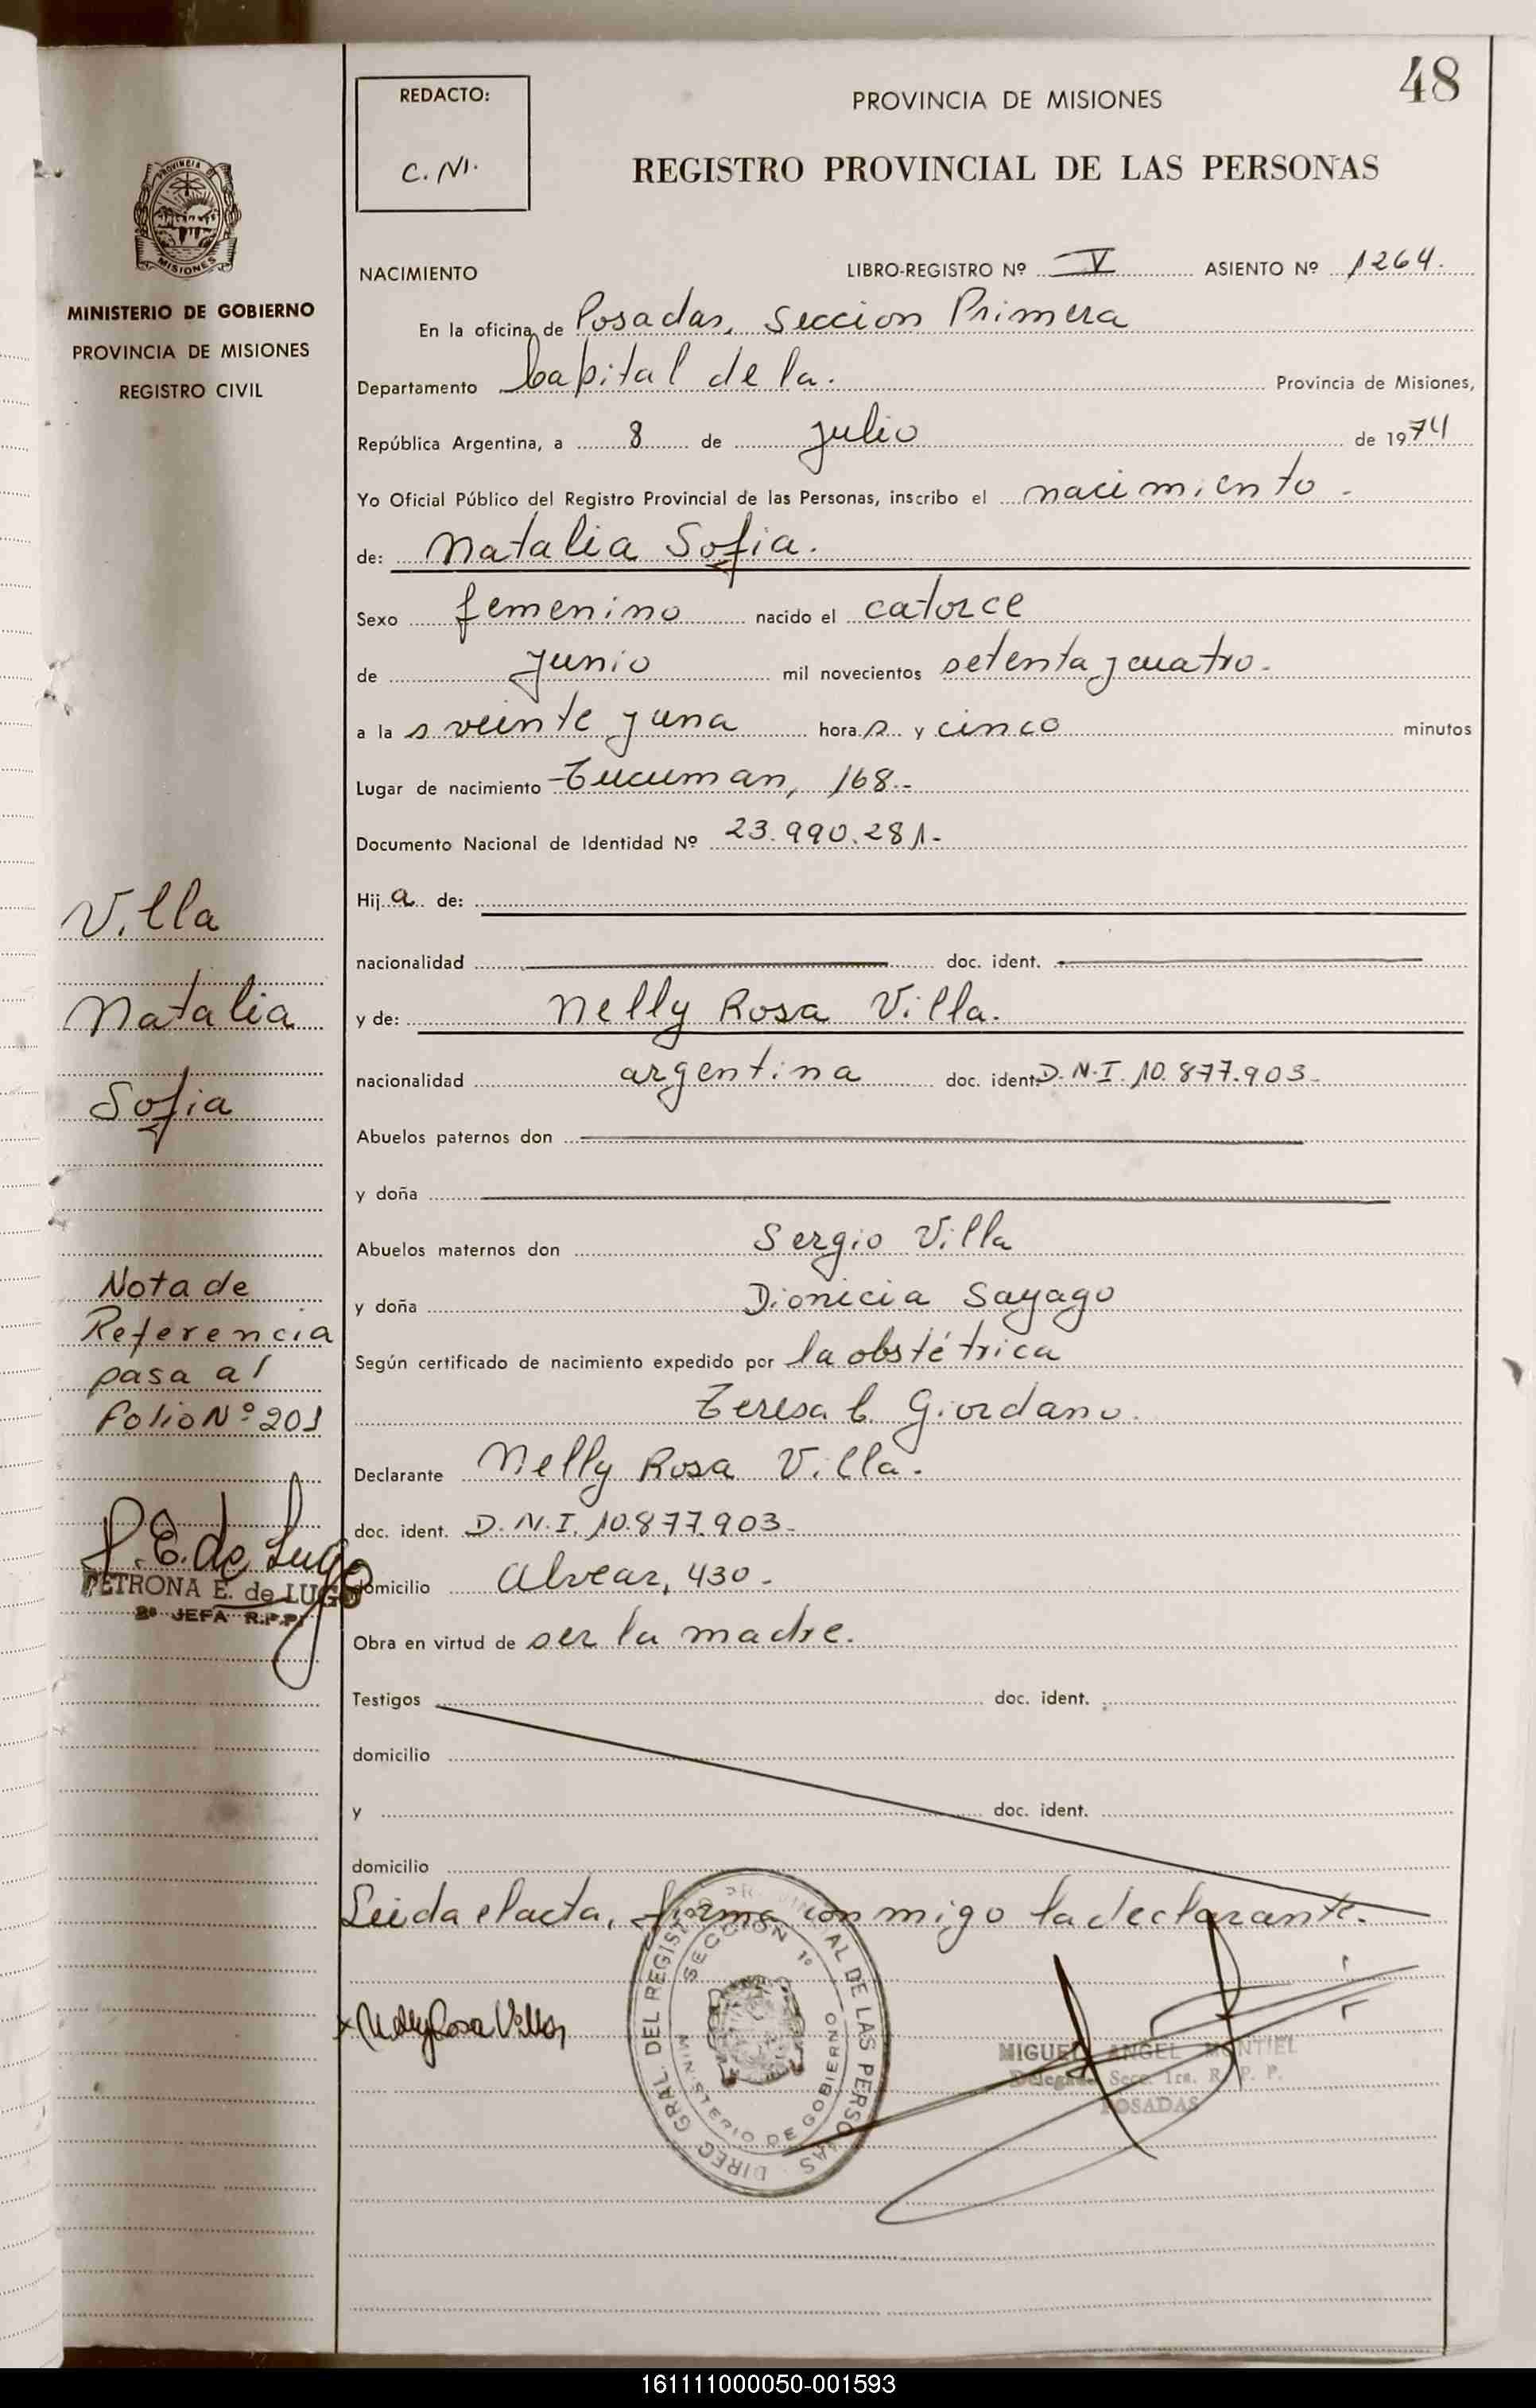 48
REDACTO:
C. M.
PROVINCIA DE MISIONES
REGISTRO PROVINCIAL DE LAS PERSONAS
PROVINCIA
MISIONES
MINISTERIO DE GOBIERNO
PROVINCIA DE MISIONES
REGISTRO CIVIL
NACIMIENTO LIBRO-REGISTRO Nº V ASIENTO Nº 1264.
En la oficina de Posadas, Seccion Primera
Departamento Capital de la. Provincia de Misiones,
República Argentina, a 8 de julio de 1974
Yo Oficial Público del Registro Provincial de las Personas, inscribo el nacimiento.
de: Natalia Sofia.
Sexo femenino nacido el catorce
de junio mil novecientos setenta y cuatro.
a la s veinte y una hora s y cinco minutos
Lugar de nacimiento Tucuman, 168.-
Documento Nacional de Identidad Nº 23.990.281.-
Hij a de:
nacionalidad doc. ident.
y de: Nelly Rosa Villa.
nacionalidad argentina doc. ident. D.N.I. 10.877.903.
Abuelos paternos don
y doña
Abuelos maternos don Sergio Villa
y doña Dionicia Sayago
Según certificado de nacimiento expedido por la obstétrica
Teresa C. Giordano.
Declarante Nelly Rosa Villa.
doc. ident. D.N.I. 10.877.903.
domicilio Alvear, 430.
Obra en virtud de ser la madre.
Testigos doc. ident.
domicilio
y doc. ident.
domicilio
Leida el acta, firma conmigo la declarante.
x Nelly Rosa Villa
DIREC. GRAL. DEL REGISTRO PROVINCIAL DE LAS PERSONAS
SECCION 1º
MINISTERIO DE GOBIERNO
MIGUEL ANGEL MONTIEL
Delegado Secc. 1ra. R. P. P.
POSADAS
Villa
Natalia
Sofia
Nota de
Referencia
pasa al
folio Nº 201
P. E. de Lugo
PETRONA E. de LUGO
2ª JEFA R.P.P.
161111000050-001593